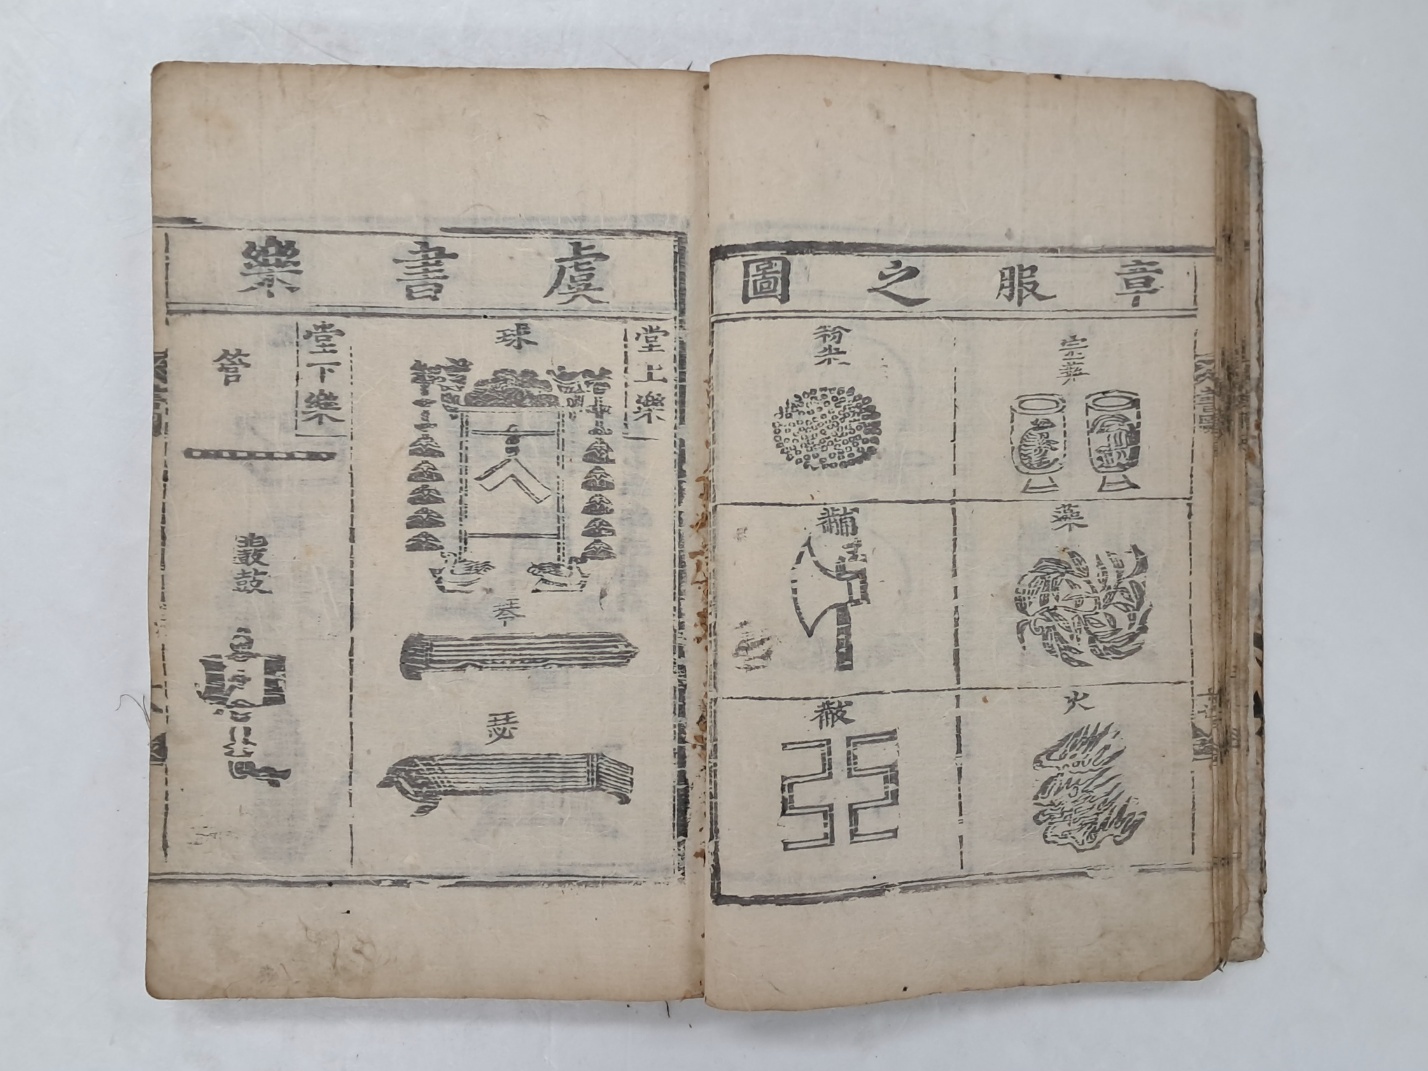 章服之圖
宗彝
藻
火
粉米
黼
黻
虞書樂
堂上樂
球
琴
瑟
堂下樂
管
鼗鼓